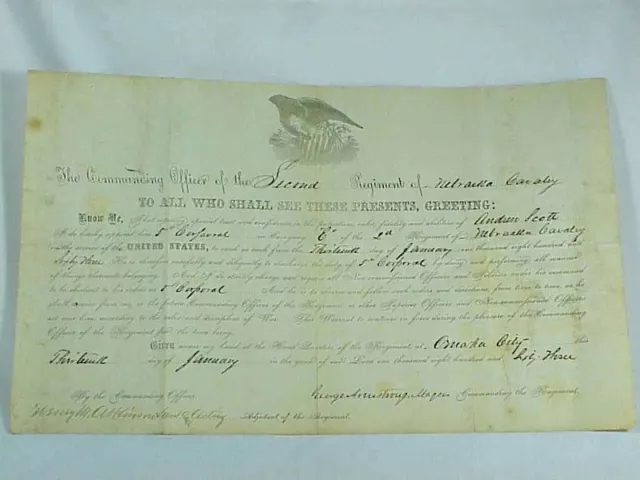 The Commanding Officer of the Second Regiment of Nebraska Cavalry
TO ALL WHO SHALL SEE THESE PRESENTS, GREETING:
Know Ye, That reposing special trust and confidence in the patriotism, valor, fidelity and abilities of Andrew Scott
I do hereby appoint him 5" Corporal in Company "C" of the 2d Regiment of Nebraska Cavalry
in the service of the UNITED STATES, to rank as such from the Thirteenth day of January one thousand eight hundred and
Sixty Three He is therefore carefully and diligently to discharge the duty of 5" Corporal by doing and performing all manner
of things thereunto belonging. And I do strictly charge and require all Non-commissioned Officers and Soldiers under his command
to be obedient to his orders as 5" Corporal And he is to observe and follow such orders and directions from time to time, as he
shall receive from me, or the future Commanding Officer of the Regiment, or other Superior Officers and Non-commissioned Officers
set over him, according to the rules and discipline of War. This Warrant to continue in force during the pleasure of the Commanding
Officer of the Regiment for the time being.
Given under my hand at the Head Quarters of the Regiment at Omaha City this
Thirteenth day of January in the year of our Lord one thousand eight hundred and Sixty Three
By the Commanding Officer,
Commanding the Regiment.
Henry M. Atkinson Adjutant of the Regiment.